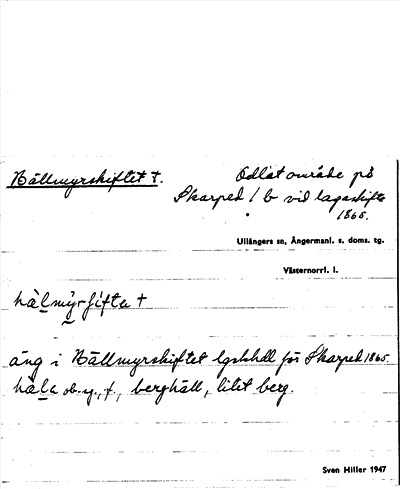 Hällmyrskiftet †.
Odlat område på
Skarped 1 b vid lagaskifte
1865.
Ullångers sn, Ångermanl. s. doms. tg.
Västernorrl. l.
hälmyr-fifta †
äng i Hällmyrskiftet lgsksh för Skarped 1865.
häla ob. y., f., berghäll, litet berg.
Sven Hiller 1947